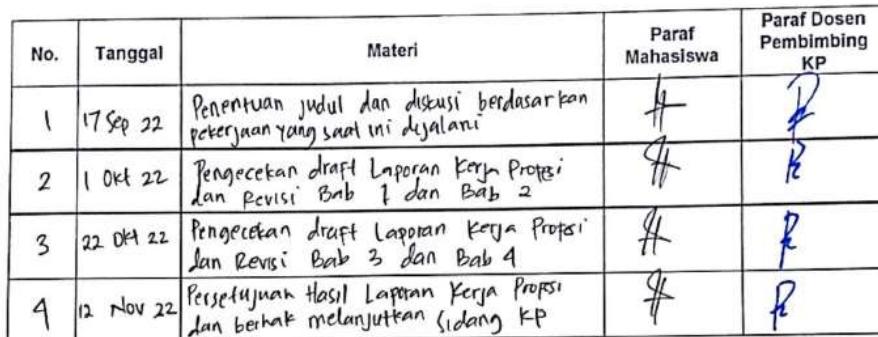 No. Tanggal Materi Paraf Mahasiswa Paraf Dosen Pembimbing KP
1 17 Sep 22 Penentuan judul dan diskusi berdasarkan
pekerjaan yang saat ini dijalani
2 1 Okt 22 Pengecekan draft Laporan Kerja Profesi
dan Revisi Bab 1 dan Bab 2
3 22 Okt 22 Pengecekan draft Laporan Kerja Profesi
dan Revisi Bab 3 dan Bab 4
4 12 Nov 22 Persetujuan Hasil Laporan Kerja Profesi
dan berhak melanjutkan Sidang KP